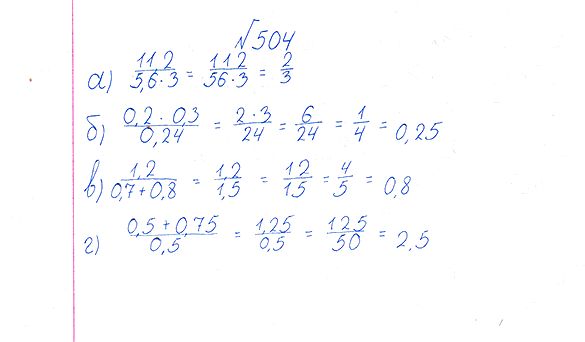 №504
а) 11,2/5,6·3 = 112/56·3 = 2/3
б) 0,2·0,3/0,24 = 2·3/24 = 6/24 = 1/4 = 0,25
в) 1,2/0,7+0,8 = 1,2/1,5 = 12/15 = 4/5 = 0,8
г) 0,5+0,75/0,5 = 1,25/0,5 = 125/50 = 2,5